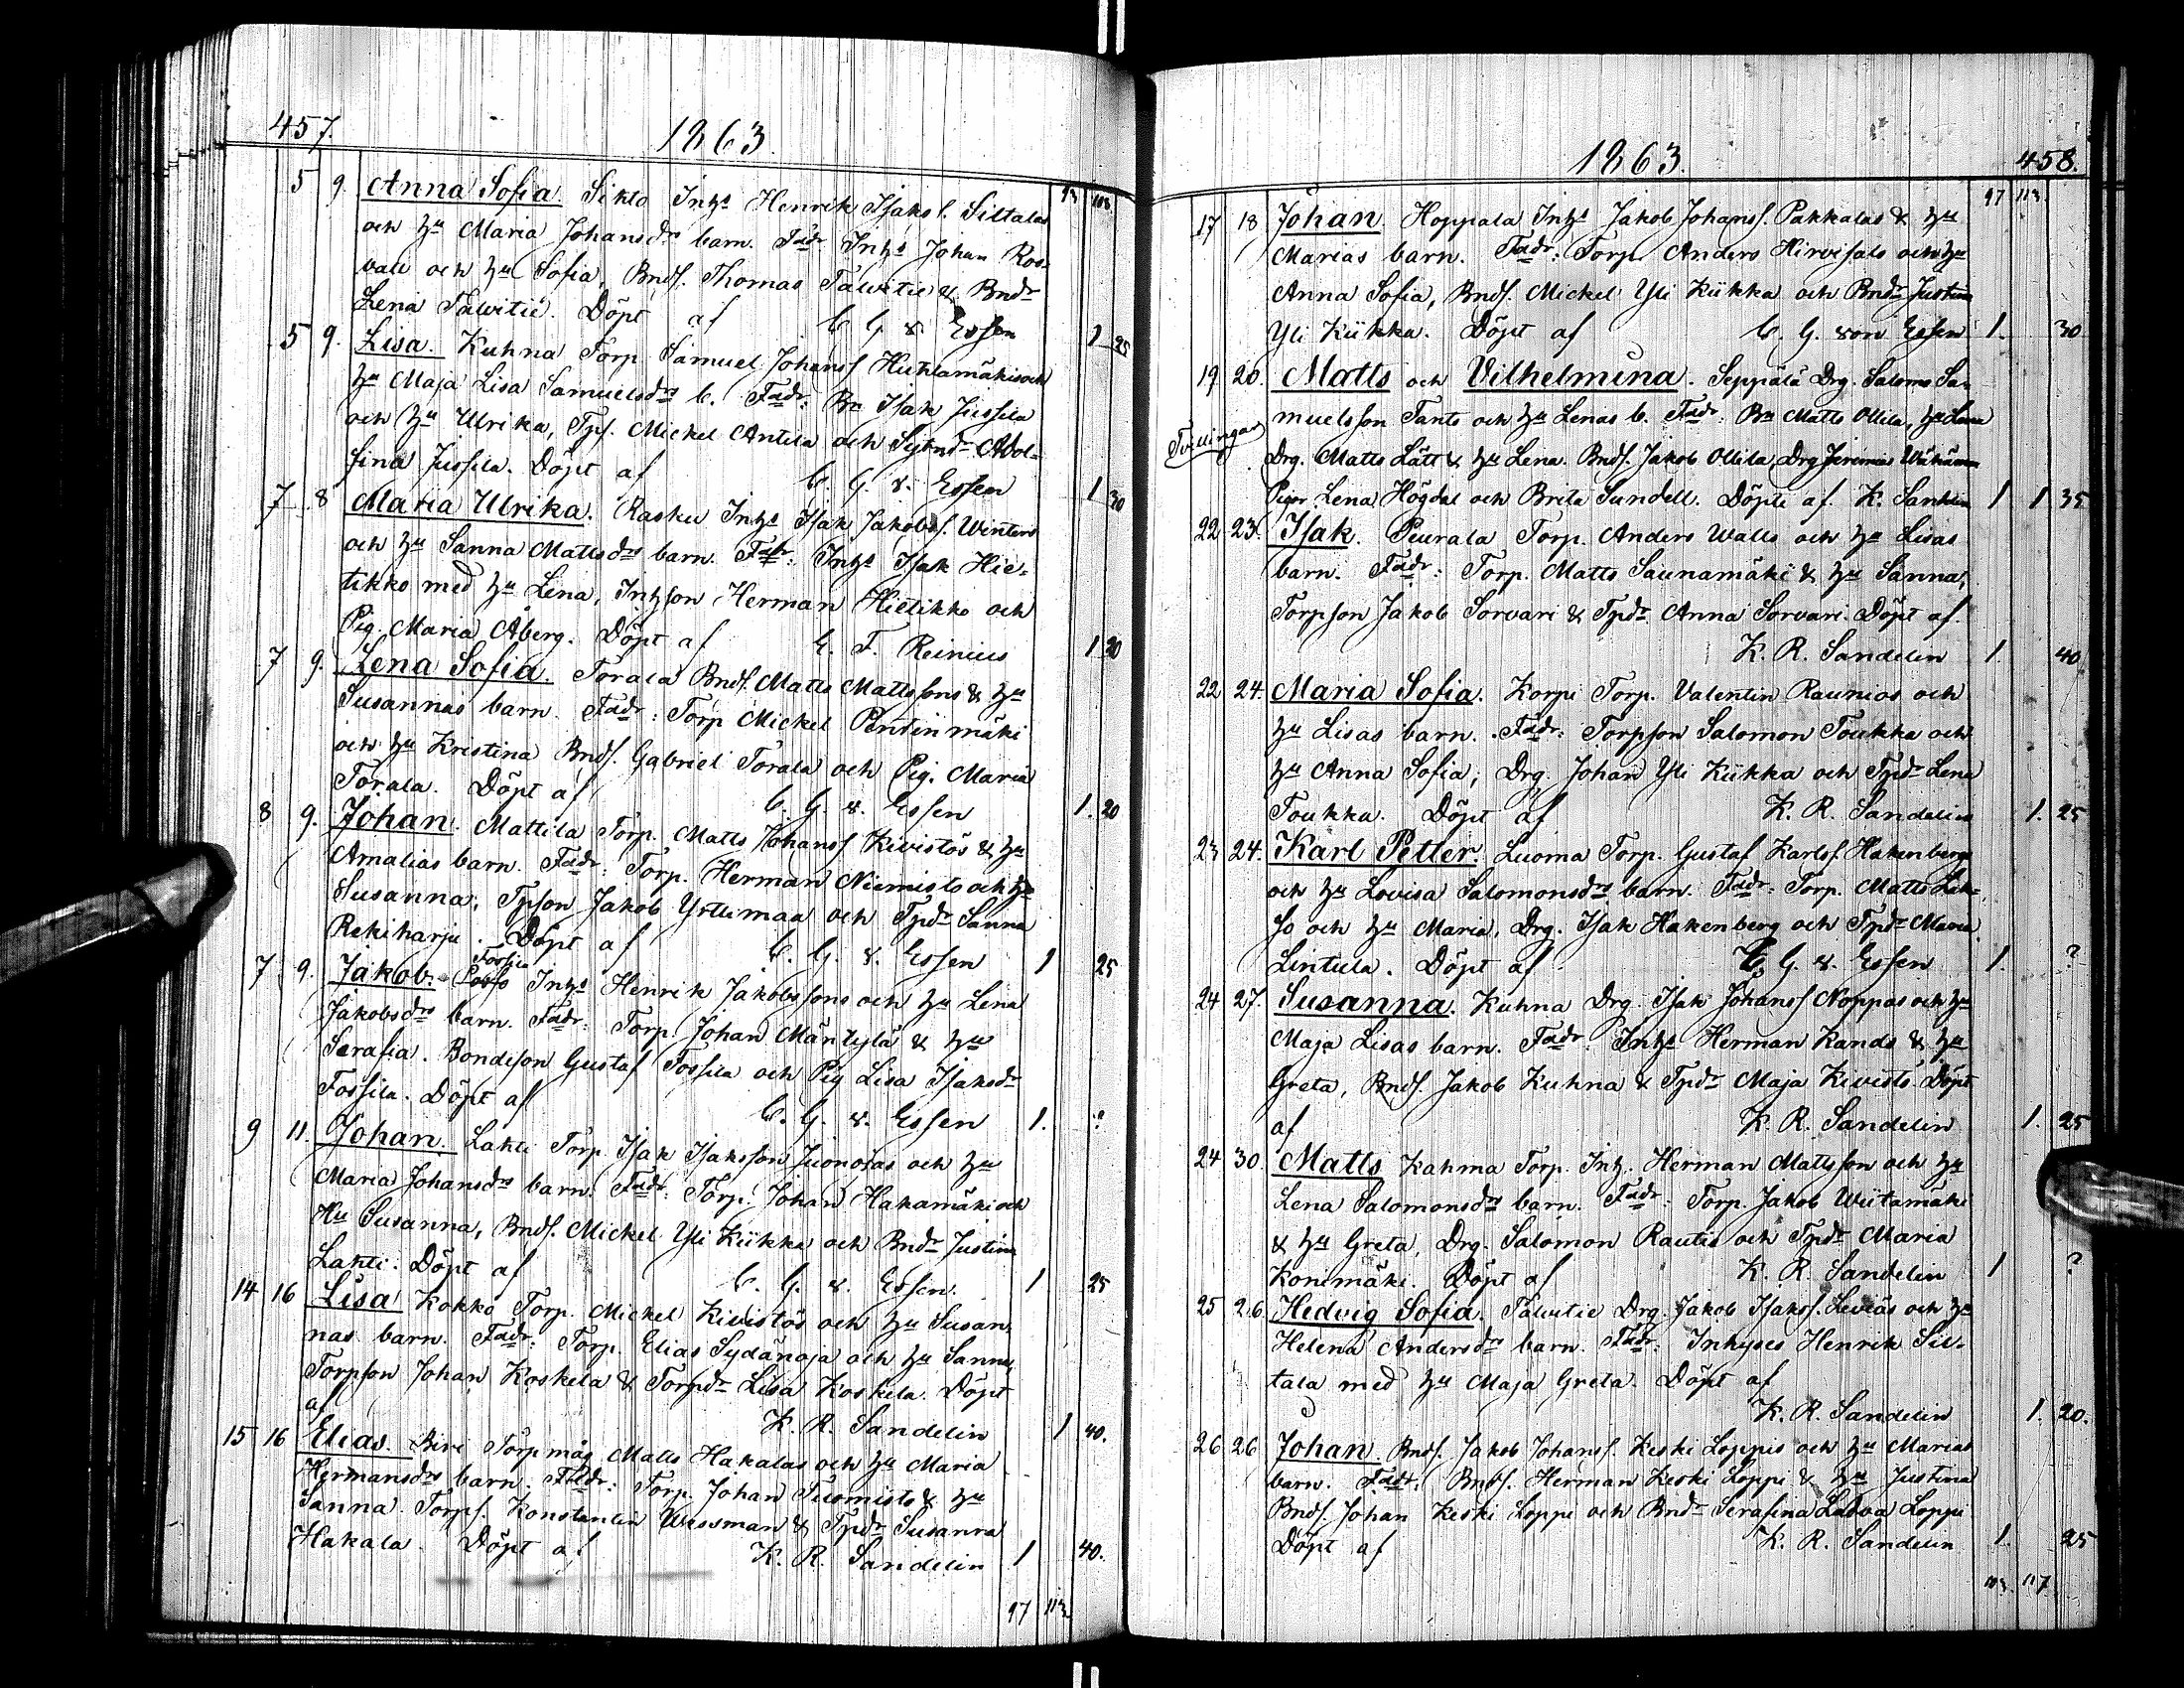 457. 1863.
93 108
5 9. Anna Sofia. Siklo Inhs Henrik Isaks f. Siltalas
och Hu Maria Johansdrs barn. Fadr. Inhs Johan Ros-
vall och Hu Sofia, Bndf. Thomas Talvitie & Bndr
Lena Talvitie. Döpt af C. G. v. Essen 1 25
5 9. Lisa. Kuhna Torp. Samuel Johansf Huhtamäkis och
Hu Maja Lisa Samuelsdrs b. Fadr: Bn Isak Jussila
och Hu Ulrika, Tpf. Mickel Antila och Sytndr Adol-
fina Jussila. Döpt af C. G. v. Essen 1 30
7 8 Maria Ulrika. Rasku Inhs Isak Jakobsf. Winters
och Hu Sanna Mattsdrs barn. Fadr: Inhs Isak Hie-
tikko med Hu Lena, Inhson Herman Hietikko och
Pig. Maria Åberg. Döpt af E. F. Reinius 1 20
7 9. Lena Sofia. Torala Bndf. Matts Mattssons & Hu
Susannas barn. Fadr: Torp Mickel Pentinmäki
och Hu Kristina Bndf. Gabriel Torala och Pig. Maria
Torala. Döpt af C. G. v. Essen 1. 20
8 9. Johan. Mattila Torp. Matts Johansf Kivistös & Hu
Amalias barn. Fadr: Torp. Herman Niemisto och Hu
Susanna, Tpson Jakob Yrttimaa och Tpdr Sanna
Rekiharju. Döpt af C. G. v. Essen 1 25
7 9. Jakob. Fossila Inhs Henrik Jakobssons och Hu Lena
Jakobsdrs barn. Fadr: Torp. Johan Mäntylä & Hu
Serafia. Bondeson Gustaf Fossila och Pig Lisa Isaksdr
Fossila. Döpt af C. G. v. Essen 1. ?
9 11. Johan. Lahti Torp. Isak Isaksson Juonolas och Hu
Maria Johansdrs barn. Fadr: Torp. Johan Hakamäki och
Hu Susanna, Bndf. Mickel Yli Kükka och Bndr Justina
Lahti. Döpt af C. G. v. Essen. 1 25
14 16 Lisa Kokko Torp. Mickel Kivistös och Hu Susan-
nas barn. Fadr: Torp. Elias Sydänoja och Hu Sanna,
Torpson Johan Koskela & Torpdr Lisa Koskela. Döpt
af K. R. Sandelin 1 40.
15 16 Elias. Torpmåg Matts Hakalas och Hu Maria
Hermansdrs barn. Fadr: Torp. Johan Tuomisto & Hu
Sanna Torpf. Konstantin Wessman & Tpdr Susanna
Hakala. Döpt af K. R. Sandelin 1 40.
97 113
1863. 458.
97 113
17 18 Johan Hoppala Inhs Jakob Johansf. Pakkalas & Hu
Marias barn. Fadr: Torp. Anders Hirvisalo och Hu
Anna Sofia, Bndf. Mickel Yli Kükka och Bndr Justina
Yli Kükka. Döpt af C. G. von Essen 1. 30
19 20. Matts och Vilhelmina. Seppälä Drg. Saloms Sa-
muelsson Tants och Hu Lenas b. Fadr: Bn Matts Ollila, Hu Lena
Tvillingar
Drg. Matts Lätt & Hu Lena. Bndf. Jakob Ollila, Drg Jeremias
Pigor Lena Högdal och Brita Sundell. Döpte af K. Sandelin 1 1 35
22 23. Isak. Peurala Torp. Anders Walls och Hu Lisas
barn. Fadr: Torp. Matts Saunamäki & Hu Sanna,
Torpson Jakob Sorvari & Tpdr Anna Sorvari. Döpt af
K. R. Sandelin 1. 40
22 24. Maria Sofia. Korpi Torp. Valentin Raunios och
Hu Lisas barn. Fadr: Torpson Salomon Toukka och
Hu Anna Sofia, Drg. Johan Yli Kükka och Tpdr Lena
Toukka. Döpt af K. R. Sandelin 1. 25
23 24. Karl Petter. Luoma Torp. Gustaf Karlsf. Hakenbergs
och Hu Lovisa Salomonsdrs barn. Fadr: Torp. Matts Lak-
so och Hu Maria, Drg. Isak Hakenberg och Tpdr Maria
Lintula. Döpt af C. G. v. Essen 1. ?
24 27. Susanna. Kuhna Drg. Isak Johansf Noppas och Hu
Maja Lisas barn. Fadr: Inhs Herman Kands & Hu
Greta, Bndf. Jakob Kuhna & Tpdr Maja Kivistö. Döpt
af K. R. Sandelin 1. 25
24 30. Matts Kahma Torp. Inh. Herman Mattsson och Hu
Lena Salomonsdrs barn. Fadr: Torp. Jakob Wiitamäki
& Hu Greta, Drg. Salomon Rautio och Tpdr Maria
Konimäki. Döpt af K. R. Sandelin 1 ?
25 26. Hedvig Sofia. Talvitie Drg. Jakob Isaksf. Leviäs och Hu
Helena Andersdrs barn. Fadr: Inhyses Henrik Sil-
tala med Hu Maja Greta. Döpt af
K. R. Sandelin 1. 20.
26 26 Johan. Bndf. Jakob Johansf. Keski Loppis och Hu Marias
barn. Fadr: Bndf. Herman Keski Loppi & Hu Justina
Bndf. Johan Keski Loppi och Bndr Serafina Latva Loppi
Döpt af K. R. Sandelin 1. 25
103 117